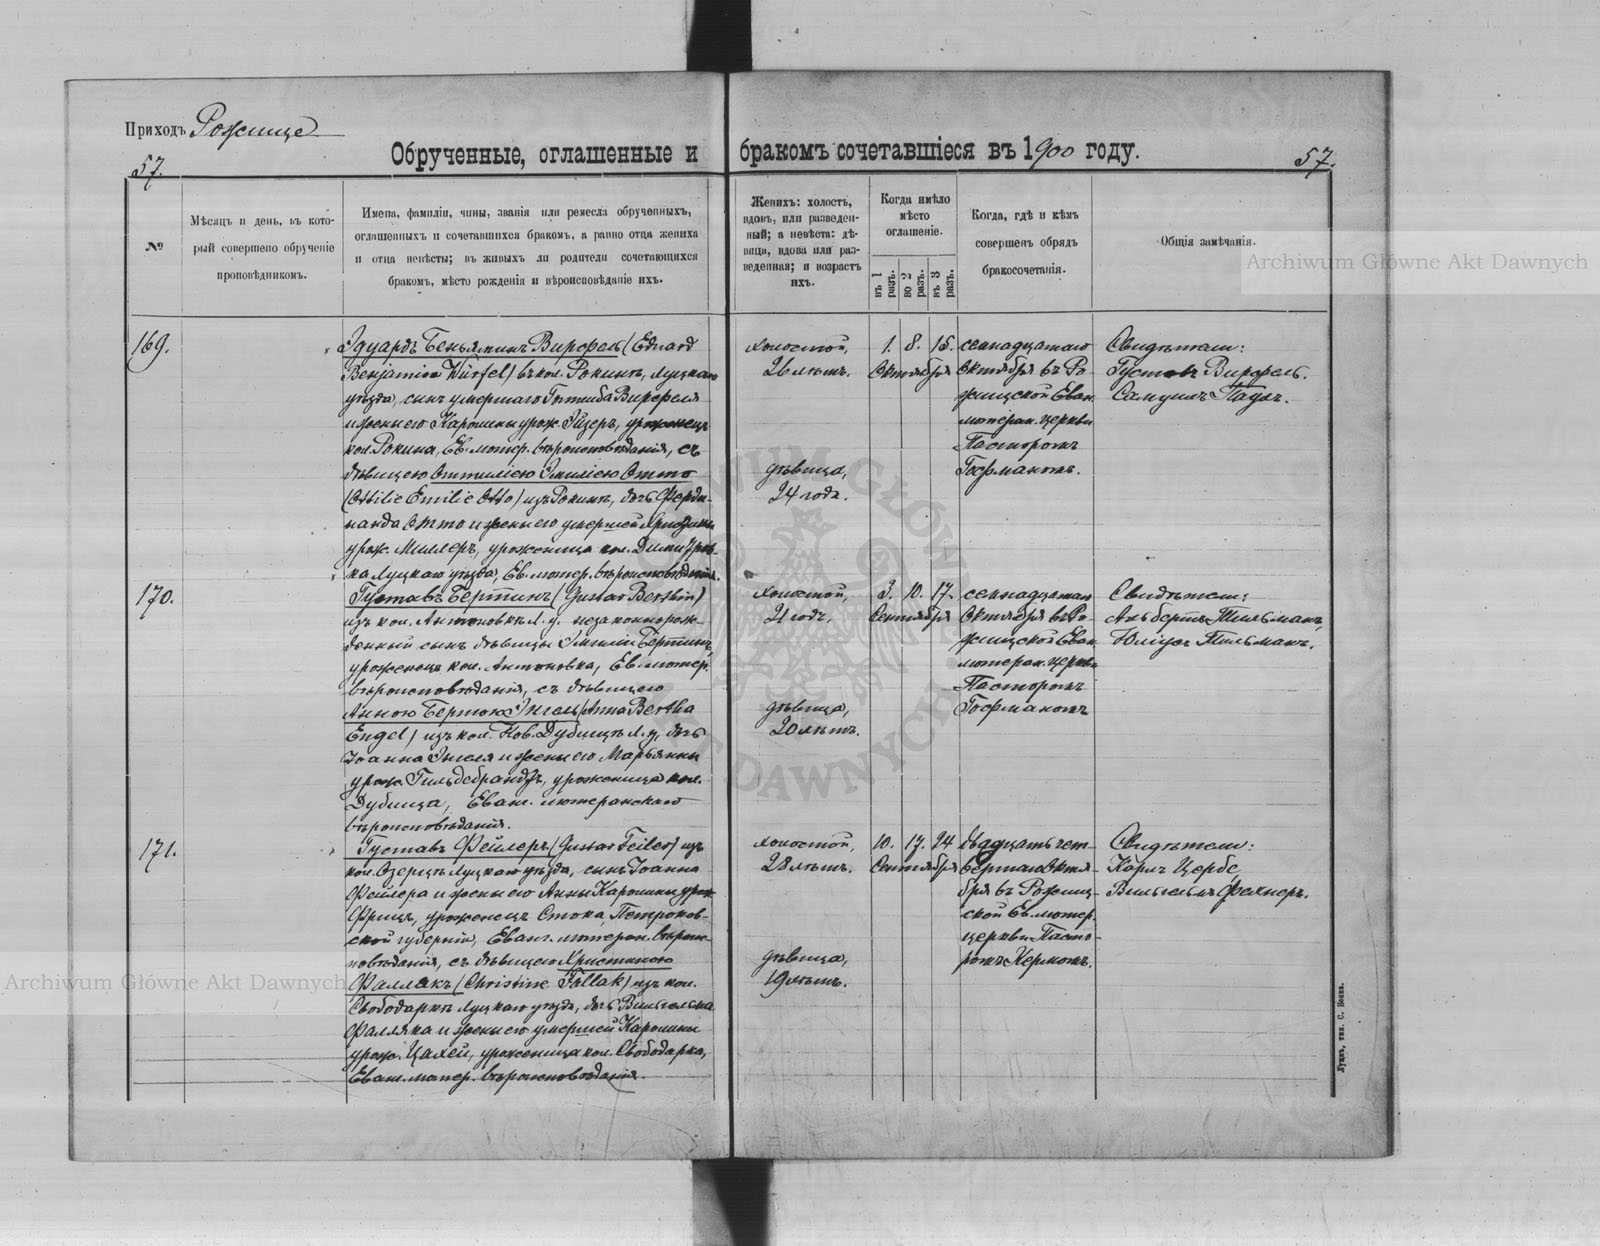 Приходъ Рожище
57.
Обрученные, оглашенные и бракомъ сочетавшіеся въ 1900 году.
57.
№
Мѣсяцъ и день, въ кото-
рый совершено обрученіе
проповѣдникомъ.
Имена, фамиліи, чины, званія или ремесла обрученныхъ,
оглашенныхъ и сочетавшихся бракомъ, а равно отца жениха
и отца невѣсты; въ живыхъ ли родители сочетающихся
бракомъ, мѣсто рожденія и вѣроисповѣданіе ихъ.
Женихъ: холостъ,
вдовъ, или разведен-
ный; а невѣста: дѣ-
вица, вдова или раз-
веденная; и возрастъ
ихъ.
Когда имѣло
мѣсто
оглашеніе.
въ 1 разъ.
во 2 разъ.
въ 3 разъ.
Когда, гдѣ и кѣмъ
совершенъ обрядъ
бракосочетанія.
Общія замѣчанія.
Archiwum Główne Akt Dawnych
169.
Эдуардъ Беньяминъ Вирфель (Eduard
Benjamin Würfel) въ кол. Рокинъ, Луцкаго
уѣзда, сынъ умершаго Готлиба Вирфеля
и жены его Каролины урож. Эйзеръ, уроженецъ
кол. Рокина, Ев. лютер. вѣроисповѣданія, съ
дѣвицею Оттиліею Эмиліею Отто
(Ottilie Emilie Otto) изъ Рокинъ, дочь Ферди-
нанда Отто и жены его умершей
урож. Миллеръ, уроженица кол.
ка Луцкаго уѣзда, Ев. лютер. вѣроисповѣданія.
холостой,
26 лѣтъ.
дѣвица,
24 года.
1. 8. 15.
Октября
семнадцатаго
Октября въ Ро-
жищской Еван.
лютеран. церкви
Пасторомъ
Госрманомъ.
Свидѣтели:
Густавъ Вирфель.
Самуилъ Паулъ.
170.
Густавъ Бертинъ (Gustav Berthin)
изъ кол. Антоновкъ Л. у. незаконнорож-
денный сынъ дѣвицы Эмиліи Бертинъ,
уроженецъ кол. Антоновка, Ев. лютер.
вѣроисповѣданія, съ дѣвицею
Анною Бертою Энгель (Anna Bertha
Engel) изъ кол. Нов. Дубищъ Л. у, дочь
Іоанна Энгеля и жены его Марьянны
урож. Гильдебрандтъ, уроженица кол.
Дубища, Еван. лютеранскаго
вѣроисповѣданія.
холостой,
21 годъ.
дѣвица,
20 лѣтъ.
3. 10. 17.
Сентября
семнадцатаго
Октября въ Ро-
жищской Еван.
лютеран. церкви
Пасторомъ
Госрманомъ
Свидѣтели:
Альбертъ Тильманъ,
Юліусъ Тильманъ.
171.
Густавъ Фейлеръ (Gustav Feiler) изъ
кол. Озерцъ Луцкаго уѣзда, сынъ Іоанна
Фейлера и жены его Анны Каролины урож.
Фрицъ, уроженецъ Стока Петроков-
ской губерніи, Еван. лютеран. вѣроис-
повѣданія, съ дѣвицею Христиною
Фаллакъ (Christine Fallak) изъ кол.
Свободаркъ Луцкаго уѣзда, дочь Вильгельма
Фалляка и жены его умершей Каролины
урож. Цилей, уроженица кол. Свободарка,
Еван. лютер. вѣроисповѣданія.
холостой,
28 лѣтъ.
дѣвица,
19 лѣтъ.
10. 17. 24
Сентября
двадцать чет-
вертаго Октя-
бря въ Рожищ-
ской Ев. лютер.
церкви Пасто-
ромъ Кермомъ.
Свидѣтели:
Карлъ Цербе,
Вильгельмъ Фехнеръ.
Archiwum Główne Akt Dawnych
Луцкъ, тип. С. Іоння.